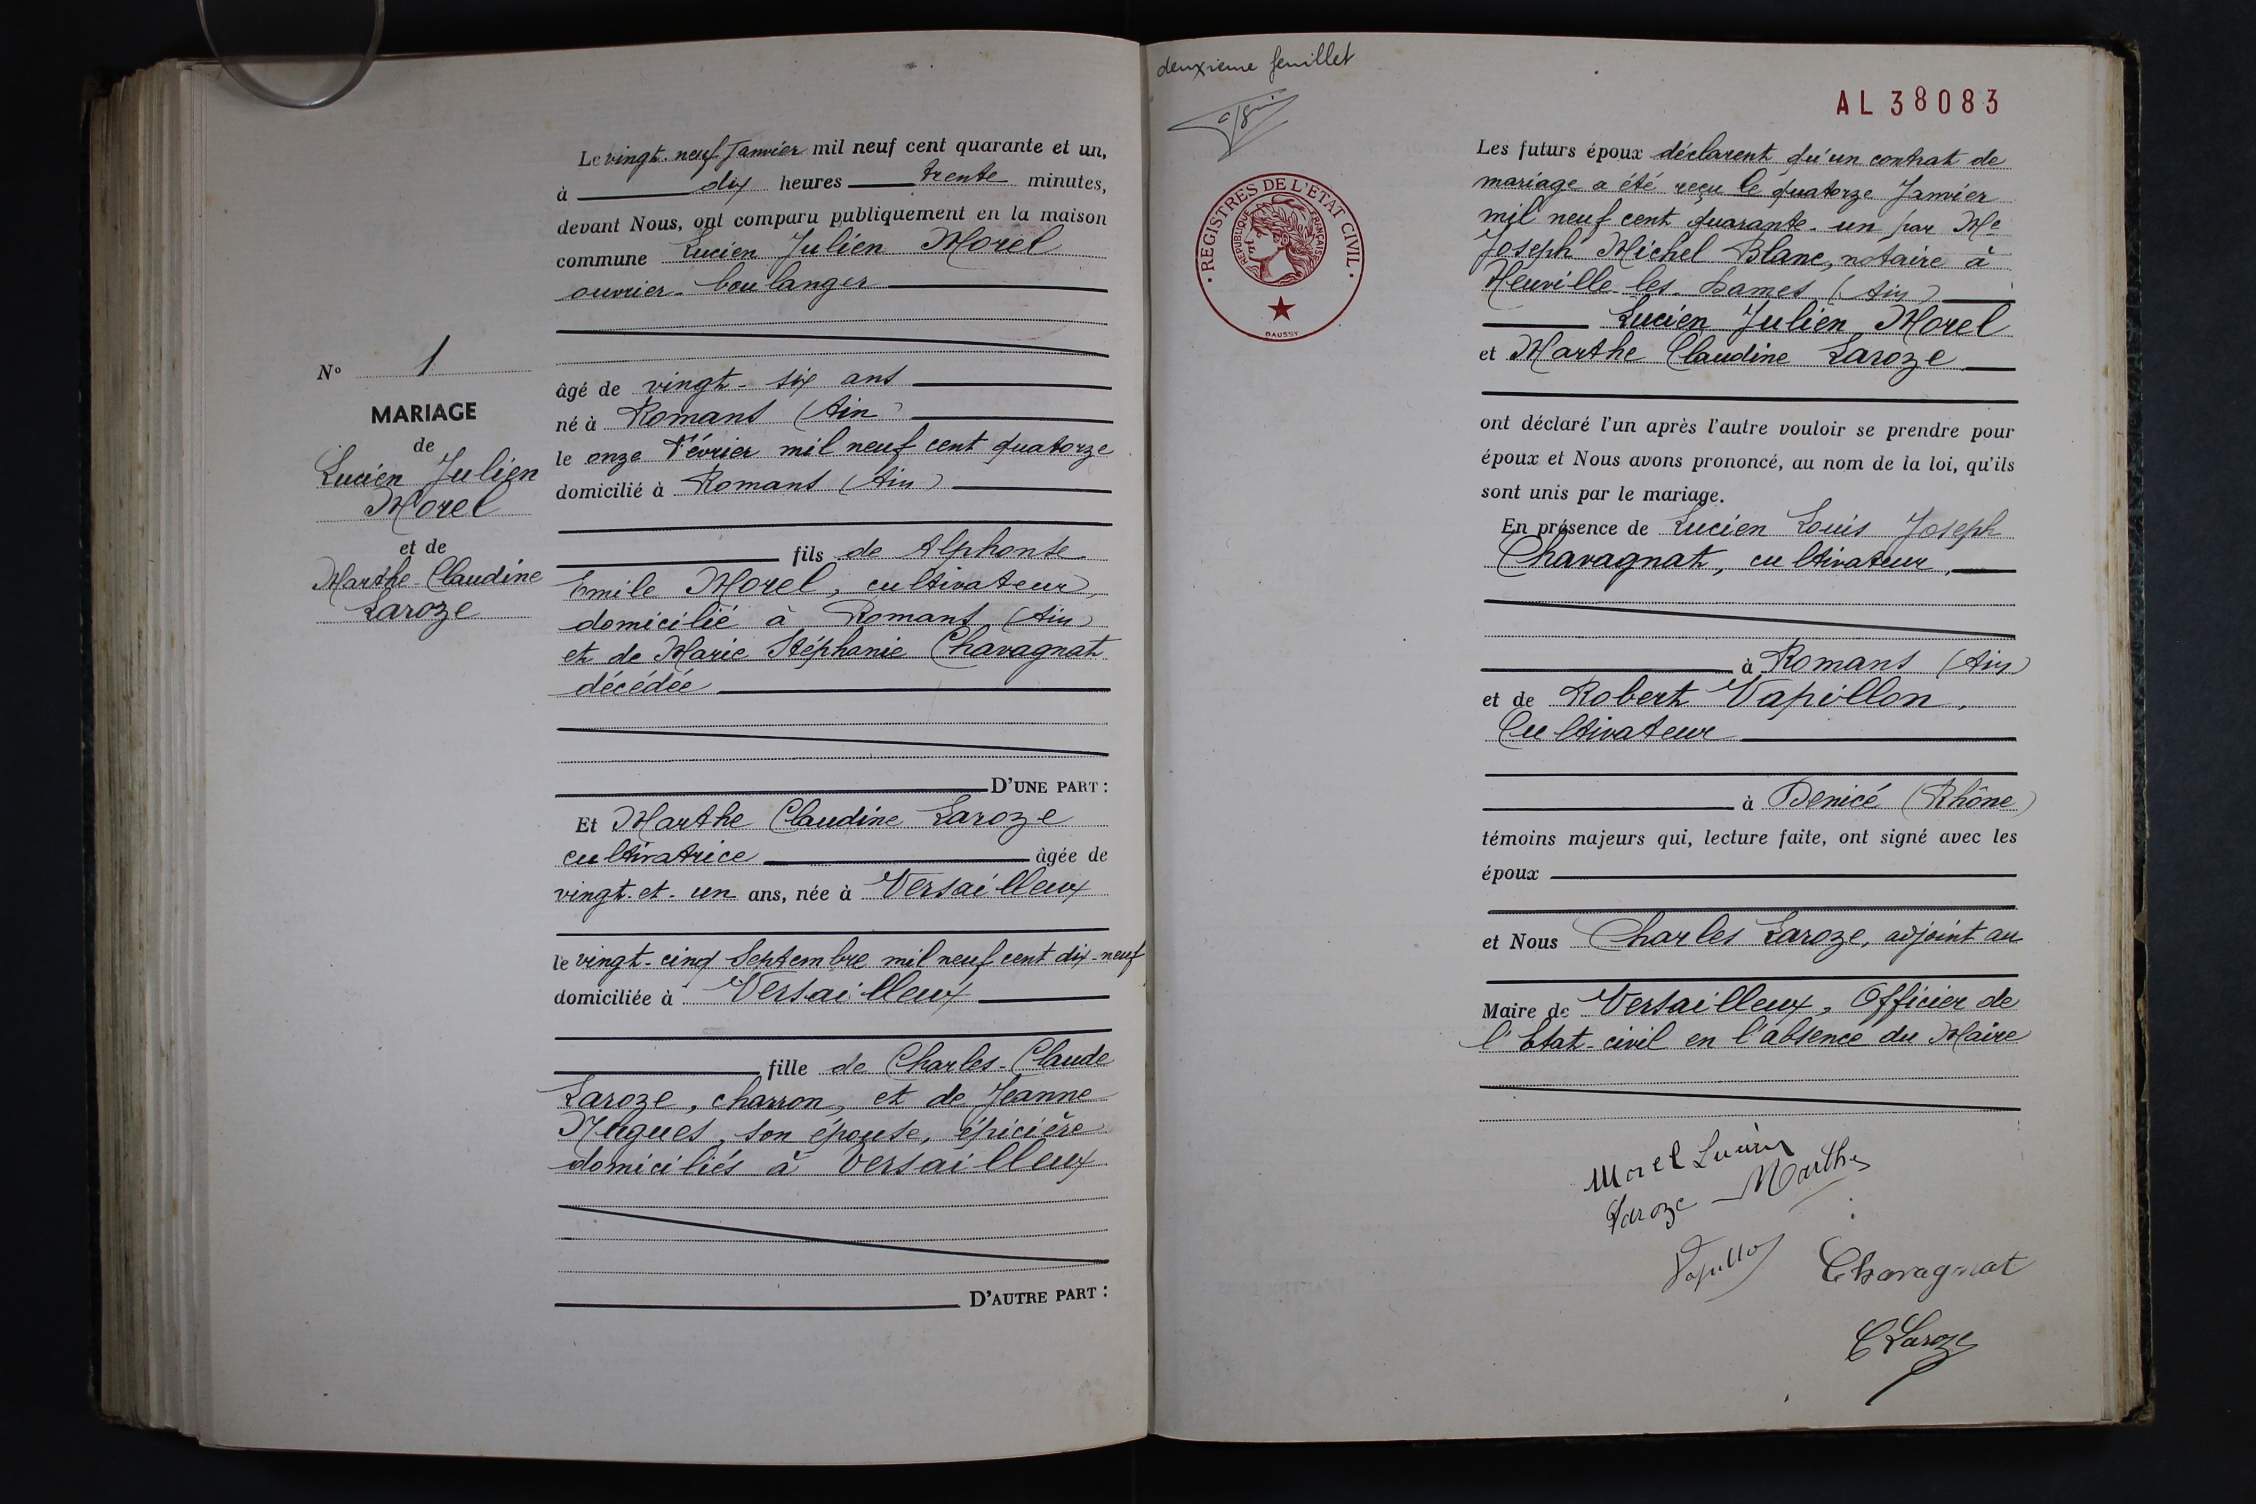 Le vingt-neuf Janvier mil neuf cent quarante et un,
à dix heures trente minutes,
devant Nous, ont comparu publiquement en la maison
commune Lucien Julien Morel
ouvrier-boulanger
âgé de vingt-six ans
né à Romans (Ain)
le onze Février mil neuf cent quatorze
domicilié à Romans (Ain)
fils de Alphonse
Emile Morel, cultivateur,
domicilié à Romans (Ain)
et de Marie Stéphanie Chavagnat
décédée
D'UNE PART :
N° 1
MARIAGE
de
Lucien Julien
Morel
et de
Marthe Claudine
Laroze
Et Marthe Claudine Laroze
cultivatrice âgée de
vingt-et-un ans, née à Versailleux
le vingt-cinq Septembre mil neuf cent dix-neuf
domiciliée à Versailleux
fille de Charles-Claude
Laroze, charron, et de Jeanne
Hugues, son épouse, épicière
domiciliés à Versailleux
D'AUTRE PART :
deuxieme feuillet
REGISTRES DE L'ETAT CIVIL
REPUBLIQUE FRANÇAISE
DAUSSY
AL 38083
Les futurs époux déclarent qu'un contrat de
mariage a été reçu le quatorze Janvier
mil neuf cent quarante-un par Me
Joseph Michel Blanc, notaire à
Neuville-les-Dames (Ain)
Lucien Julien Morel
et Marthe Claudine Laroze
ont déclaré l'un après l'autre vouloir se prendre pour
époux et Nous avons prononcé, au nom de la loi, qu'ils
sont unis par le mariage.
En présence de Lucien Louis Joseph
Chavagnat, cultivateur,
à Romans (Ain)
et de Robert Vapillon,
Cultivateur
à Denicé (Rhône)
témoins majeurs qui, lecture faite, ont signé avec les
époux
et Nous Charles Laroze, adjoint au
Maire de Versailleux, Officier de
l'Etat-civil en l'absence du Maire
Morel Lucien
Laroze Marthe
Vapillon
Chavagnat
C Laroze